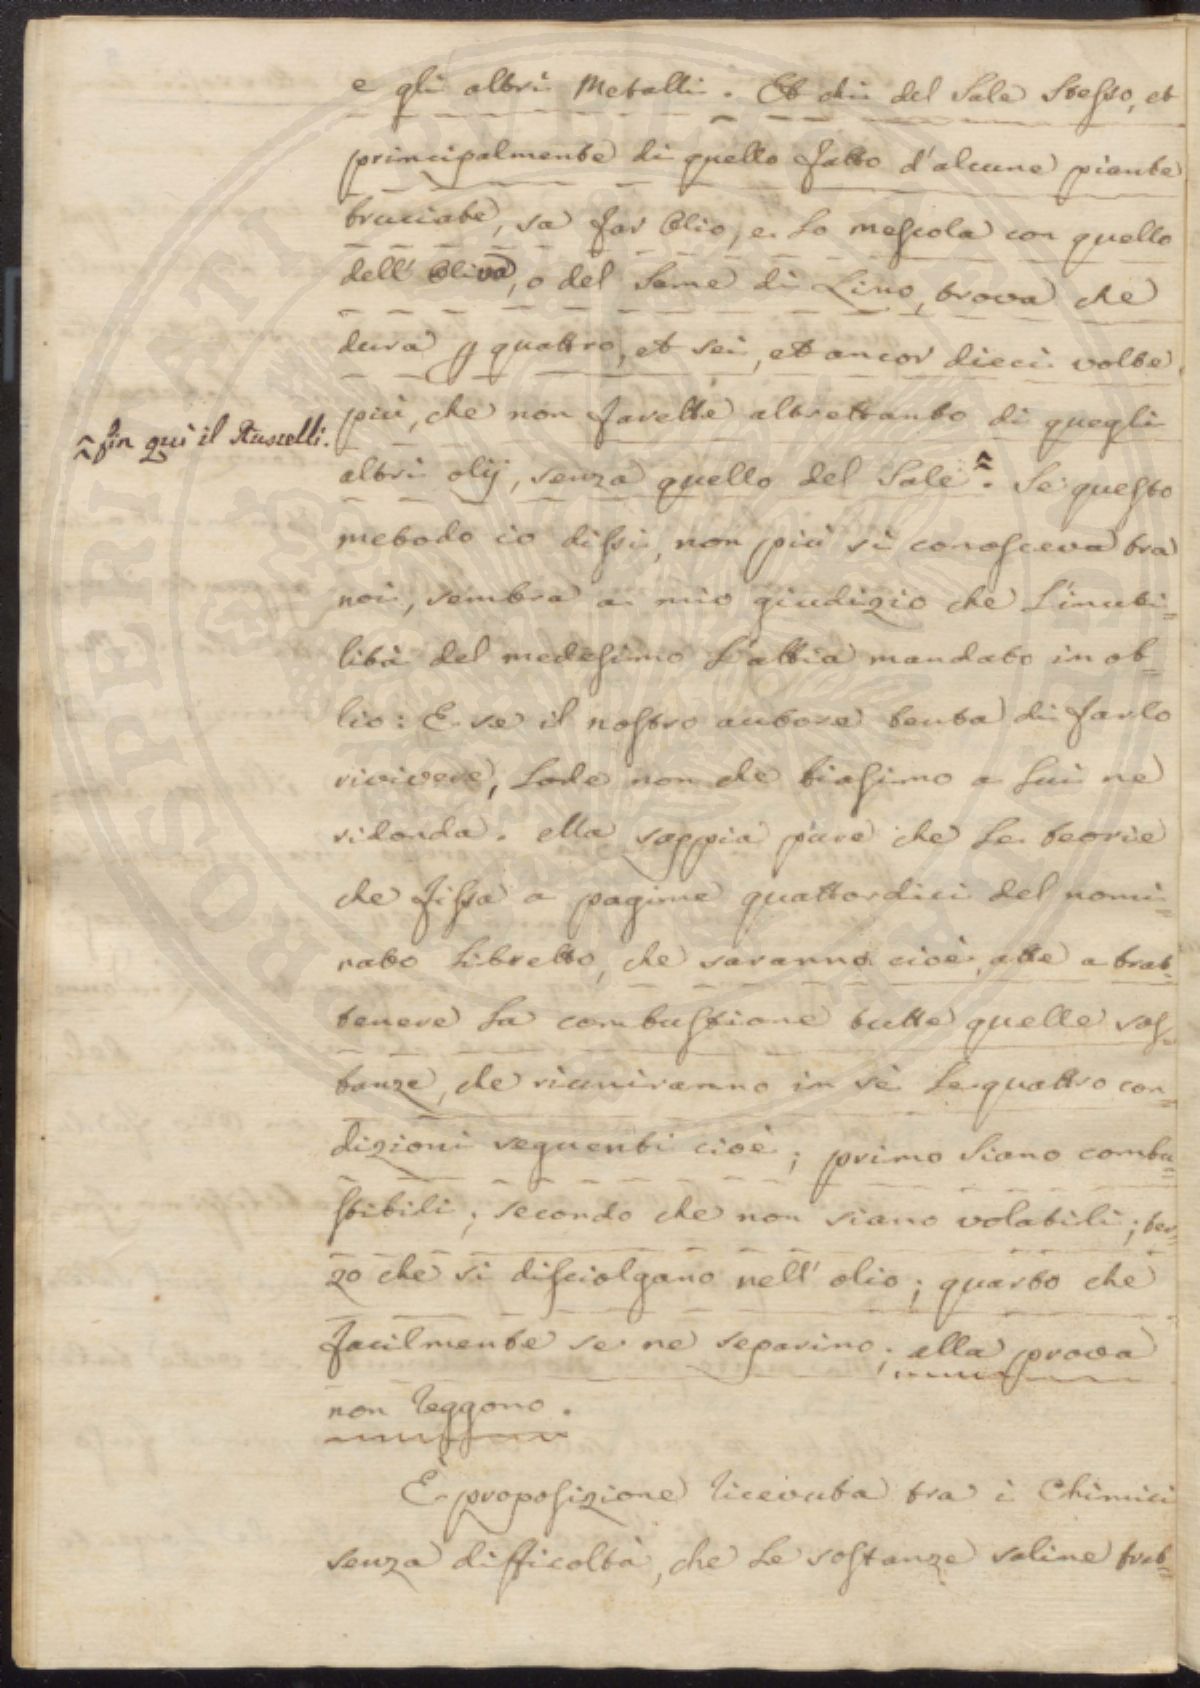 e gli altri Metalli. Et chi del Sale Stesso, et
principalmente di quello fatto d'alcune piante
bruciate, sa far Olio, e lo mescola con quello
dell'Oliva, o del Seme di Lino, trova che
dura p quattro, et sei, et ancor dieci volte
più, che non farebbe altrettanto di quegli
^ fin qui il Ruscelli.
altri olij, senza quello del Sale ^. Se questo
metodo io dissi, non più si conosceva tra
noi, sembra a mio giudizio che l'inuti=
lità del medesimo l'abbia mandato in ob=
lio: E se il nostro autore tenta di farlo
rivivere, Lode non che biasimo a lui ne
ridonda. Ma sappia pure che le teorie
che fissa a pagine quattordici del nomi=
nato Libretto, che saranno cioè, atte a trat=
tenere la combustione tutte quelle sos=
tanze, che riuniranno in sè le quattro con=
dizioni seguenti cioè; primo siano combu=
stibili; secondo che non siano volatili; ter=
zo che si disciolgano nell'olio; quarto che
facilmente se ne separino; alla prova
non reggono.
È proposizione ricevuta tra i Chimici
senza difficoltà, che le sostanze saline trat=
PROSPERI
PUBLICA